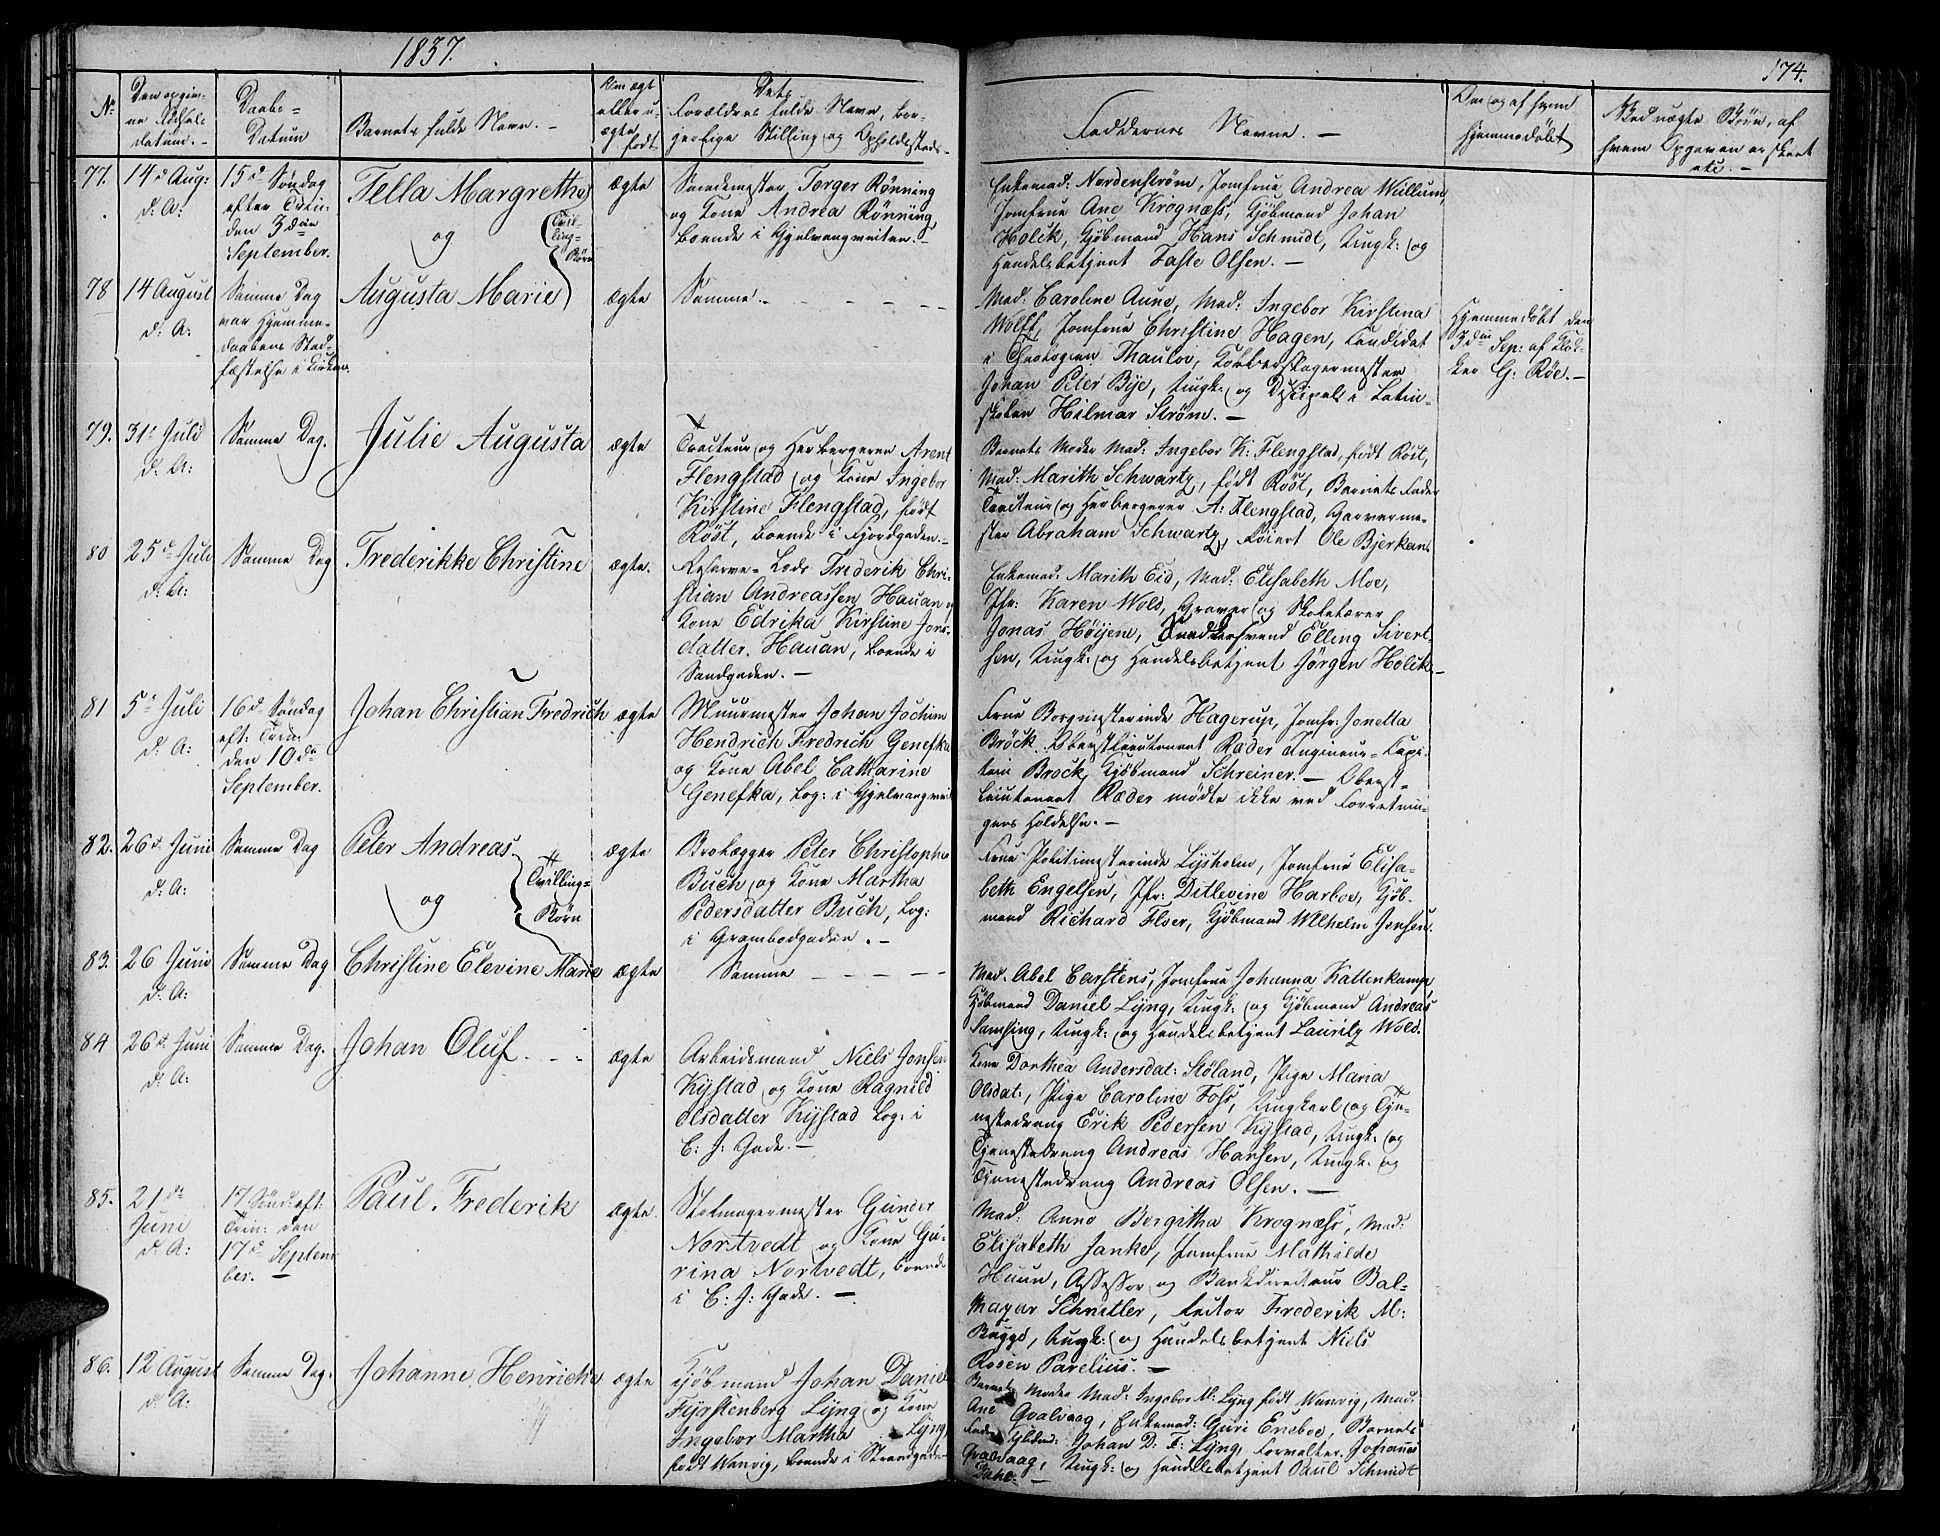 1837.
174.
No
Den opgiv-
ne Fødsels
datum.
Daabs-
Datum
Barnets fulde Navn.
Om ægte
eller u-
ægte
født
Dets
Forældres fulde Navn, bor-
gerlige Stilling og Opholdssted.
Faddernes Navne.
Om og af hvem
hjemmedøbt
Ved uægte Børn, af
hvem Opgaven er skeet
etc.
77.
14d Aug:
d: A:
15d Søndag
efter Trin:
den 3die
September.
Tella Margrethe
og
Tvil-
ling-
Børn
ægte
Smedemester Torger Rønning
og Kone Andrea Rønning
boende i Gjelvangveiten.
Enkemad: Nordenstrøm, Jomfrue Andrea Wullum,
Jomfrue Ane Krognæss, Kjøbmand Johan
Holck, Kjøbmand Hans Schmidt, Ungk: og
Handelsbetjent Faste Olsen.
78
14 August
d: A:
Samme Dag
var Hjemme-
daabens Stad-
fæstelse i Kirken.
Augusta Marie
ægte
Samme.
Mad: Caroline Aune, Mad: Ingebor Kirstina
Wolff, Jomfrue Christine Hagen, Candidat
i Theologien Thaulov, Kobberslagermester
Johan Peter Bye, Ungk: og Discipel i Latin-
skolen Hilmar Strøm.
Hjemmedøbt den
3die Sep: af Klok-
ker G: Røe.
79.
31te Juli
d: A:
Samme Dag.
Julie Augusta
ægte
Tracteur og Herbergerer Arent
Flengstad og Kone Ingebor
Kirstine Flengstad, født
Røst, boende i Fjordgaden.
Barnets Moder Mad: Ingebor K: Flengstad, født Røst,
Mad: Marith Schwartz, født Røst, Barnets Fader
Tracteur og Herbergerer A: Flengstad, Garverme-
ster Abraham Schwartz, Føiert Ole Bjerkan.
80
25de Juli
d: A:
Samme Dag
Frederikke Christine
ægte.
Reserve-Lods Frederik Chri-
stian Andreassen Hauan og
Kone Edrika Kirstine Jons-
datter Hauan, boende i
Sandgaden.
Enkemad: Marith Eid, Mad: Elisabeth Moe,
Jfr: Karen Wold, Graver og Skolelærer
Jonas Høijem, Snedkersvend Elling Sivert-
sen, Ungk: og Handelsbetjent Jørgen Holck.
81
5te Juli
d: A:
16de Søndag
eft: Trin:
den 10de
September.
Johan Christian Fredrich
ægte
Muurmester Johan Jochim
Hendrich Fredrich Genefka
og Kone Abel Catharine
Genefka, Log: i Gjelvangveit
Frue Borgmesterinde Hagerup, Jomfr: Jonetta
Brock, Oberstlieutenant Rader Ingineur-Capi-
tein Brock, Kjøbmand Schreiner. Oberst-
Lieutenant Ræder mødte ikke ved Forretnin-
gens Holdelse.
82.
26d Juni
d: A:
Samme Dag
Peter Andreas
og
Tvilling-
Børn
ægte
Brolægger Peter Christopher
Buch og Kone Martha
Pedersdatter Buch, Log:
i Grambodgaden.
Frue Politimesterinde Lysholm, Jomfrue Elisa-
beth Engelsen, Jfr: Ditlevine Harboe, Kjøb-
mand Richard Floer, Kjøbmand Wilhelm Jensen.
83.
26 Juni
d: A:
Samme Dag
Christine Elevine Marie
ægte
Samme
Mad. Abel Carstens, Jomfrue Johanna Kattenkamp
Kjøbmand Daniel Lyng, Ungk: og Kjøbmand Andreas
Samsing, Ungk: og Handelsbetjent Lauritz Wold.
84
26d Juni
d: A:
Samme Dag.
Johan Oluf
ægte
Arbeidsmand Niels Jonsen
Kystad og Kone Ragnild
Olsdatter Kystad Log: i
C: J: Gade.
Kone Dorthea Andersdat: Støland, Pige Maria
Olsdat:, Pige Caroline Foss, Ungkarl og Tje-
nestedreng Erik Pedersen Kystad, Ungk: og
Tjenestedreng Andreas Hansen, Ungk: og
Tjenestedreng Andreas Olsen.
85.
21de
Juni
d: A:
17 Sønd: eft:
Trin: den
17d Septem-
ber.
Paul Frederik
ægte
Stolmagermester Gunder
Nortvedt og Kone Gu-
rina Nortvedt, boende
i C: J: Gade.
Mad: Anne Bergitha Krognæss, Mad:
Elisabeth Janke, Jomfrue Mathilde
Huun, Assessor og Bankdirecteur Bal-
thazar Schnitler, Lector Frederik M:
Bugge, Ungk: og Handelsbetjent Niels
Rosen Parelius.
86.
12 August
d: A:
Samme Dag.
Johanne Henricha
ægte
Kjøbmand Johan Daniel
Fyrstenberg Lyng og Kone
Ingebor Martha Lyng
født Wanvig, boende i Strandgaden
Barnets Moder Mad: Ingebor M: Lyng født Wanvig, Mad:
Ane Qvalvaag, Enkemad: Guri Eneboe, Barnets
Fader Kjbmd: Johan D: F: Lyng, Forvalter Johannes
Qvalvaag, Ungk: og Handelsbetjent Paul Schmidt
Dahl.